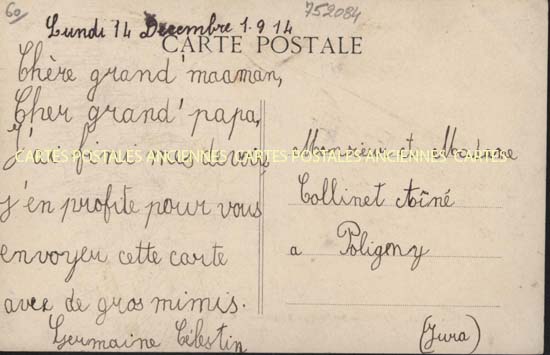 60
752084
Lundi 14 Decembre 1.9.14
CARTE POSTALE
Chère grand'maaman,
Cher grand'papa,
J'ai fini mes devoi
j'en profite pour vous
envoyer cette carte
avec de gros mimis.
Germaine Célestin
Monsieur et Madame
Collinet Aîné
a Poligny
(Jura)
CARTES POSTALES ANCIENNES CARTES POSTALES ANCIENNES CARTES